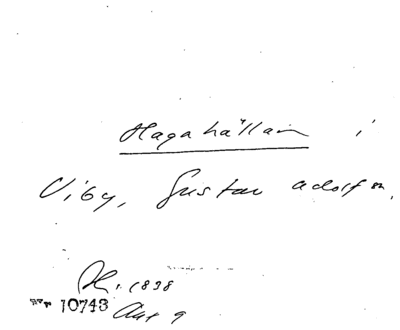 Hagahällan i
Viby, Gustav Adolf sn.
1838
10743